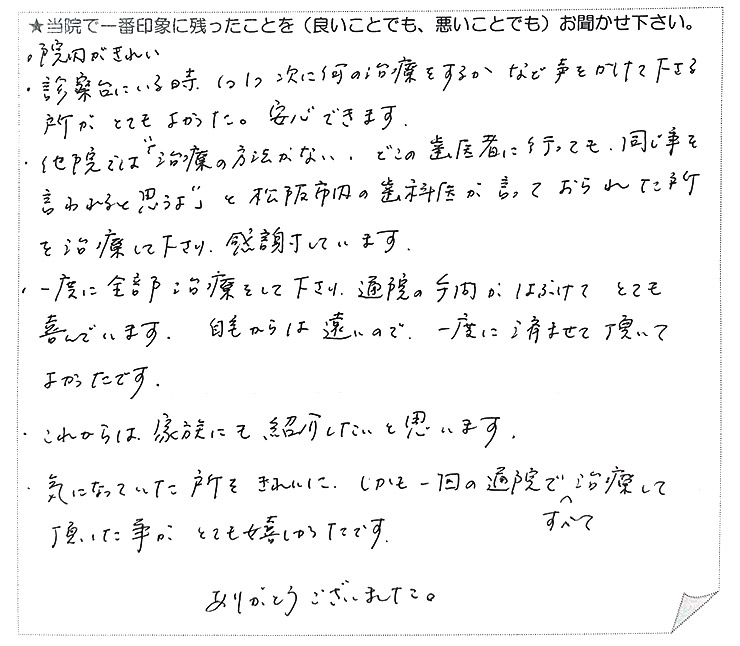 ★当院で一番印象に残ったことを（良いことでも、悪いことでも）お聞かせ下さい。
。院内がきれい
・診察台にいる時、1つ1つ次に何の治療をするかなど声をかけて下さる
所がとてもよかった。安心できます。
・他院では"治療の方法がない、どこの歯医者に行っても、同じ事を
言われると思うよ"」と松阪市内の歯科医が言っておられた所
を治療して下さり、感謝しています。
・一度に全部治療をして下さり、通院の手間がはぶけてとても
喜んでいます。自宅からは遠いので、一度に済ませて頂いて
よかったです。
・これからは、家族にも紹介したいと思います。
・気になっていた所をきれいに、しかも一回の通院ですべて治療して
頂いた事がとても嬉しかったです。
ありがとうございました。